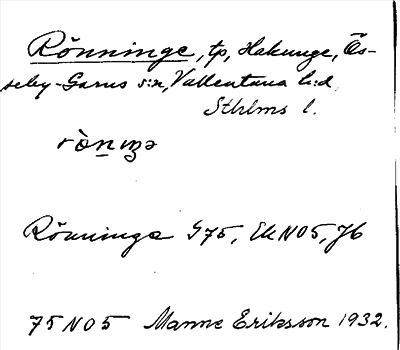 Rönninge, tp, Hakunge, Ös-
seby-Garns s:n, Vallentuna h:d,
Sthlms l.
Rönninge G75, Ek NO5, Jb
75 NO5 Manne Eriksson 1932.